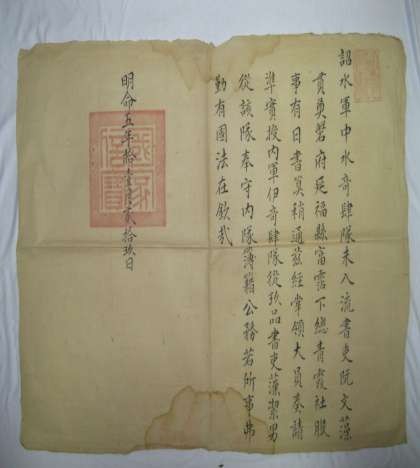 詔水軍中水奇肆隊未入流書吏阮文藻
貫奠磐府延福縣富霑下總青霞社服
事有日書筭稍通茲經掌領大員奏請
準實授內軍伊奇肆隊從玖品書吏藻潔男
從該隊奉守內隊簿籍公務若所事弗
勤有國法在欽哉
明命五年拾壹月貳拾玖日
國家信寶